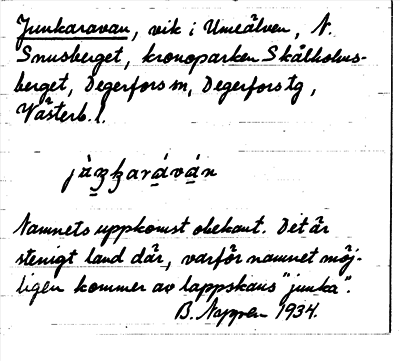 Junkaravan, vik i Umeälven, N.
Snusberget, kronoparken Skålholms-
berget, Degerfors sn, Degerfors tg,
Västerb. l.
Namnets uppkomst obekant. Det är
stenigt land där, varför namnet möj-
ligen kommer av lappskans "junka".
1934.